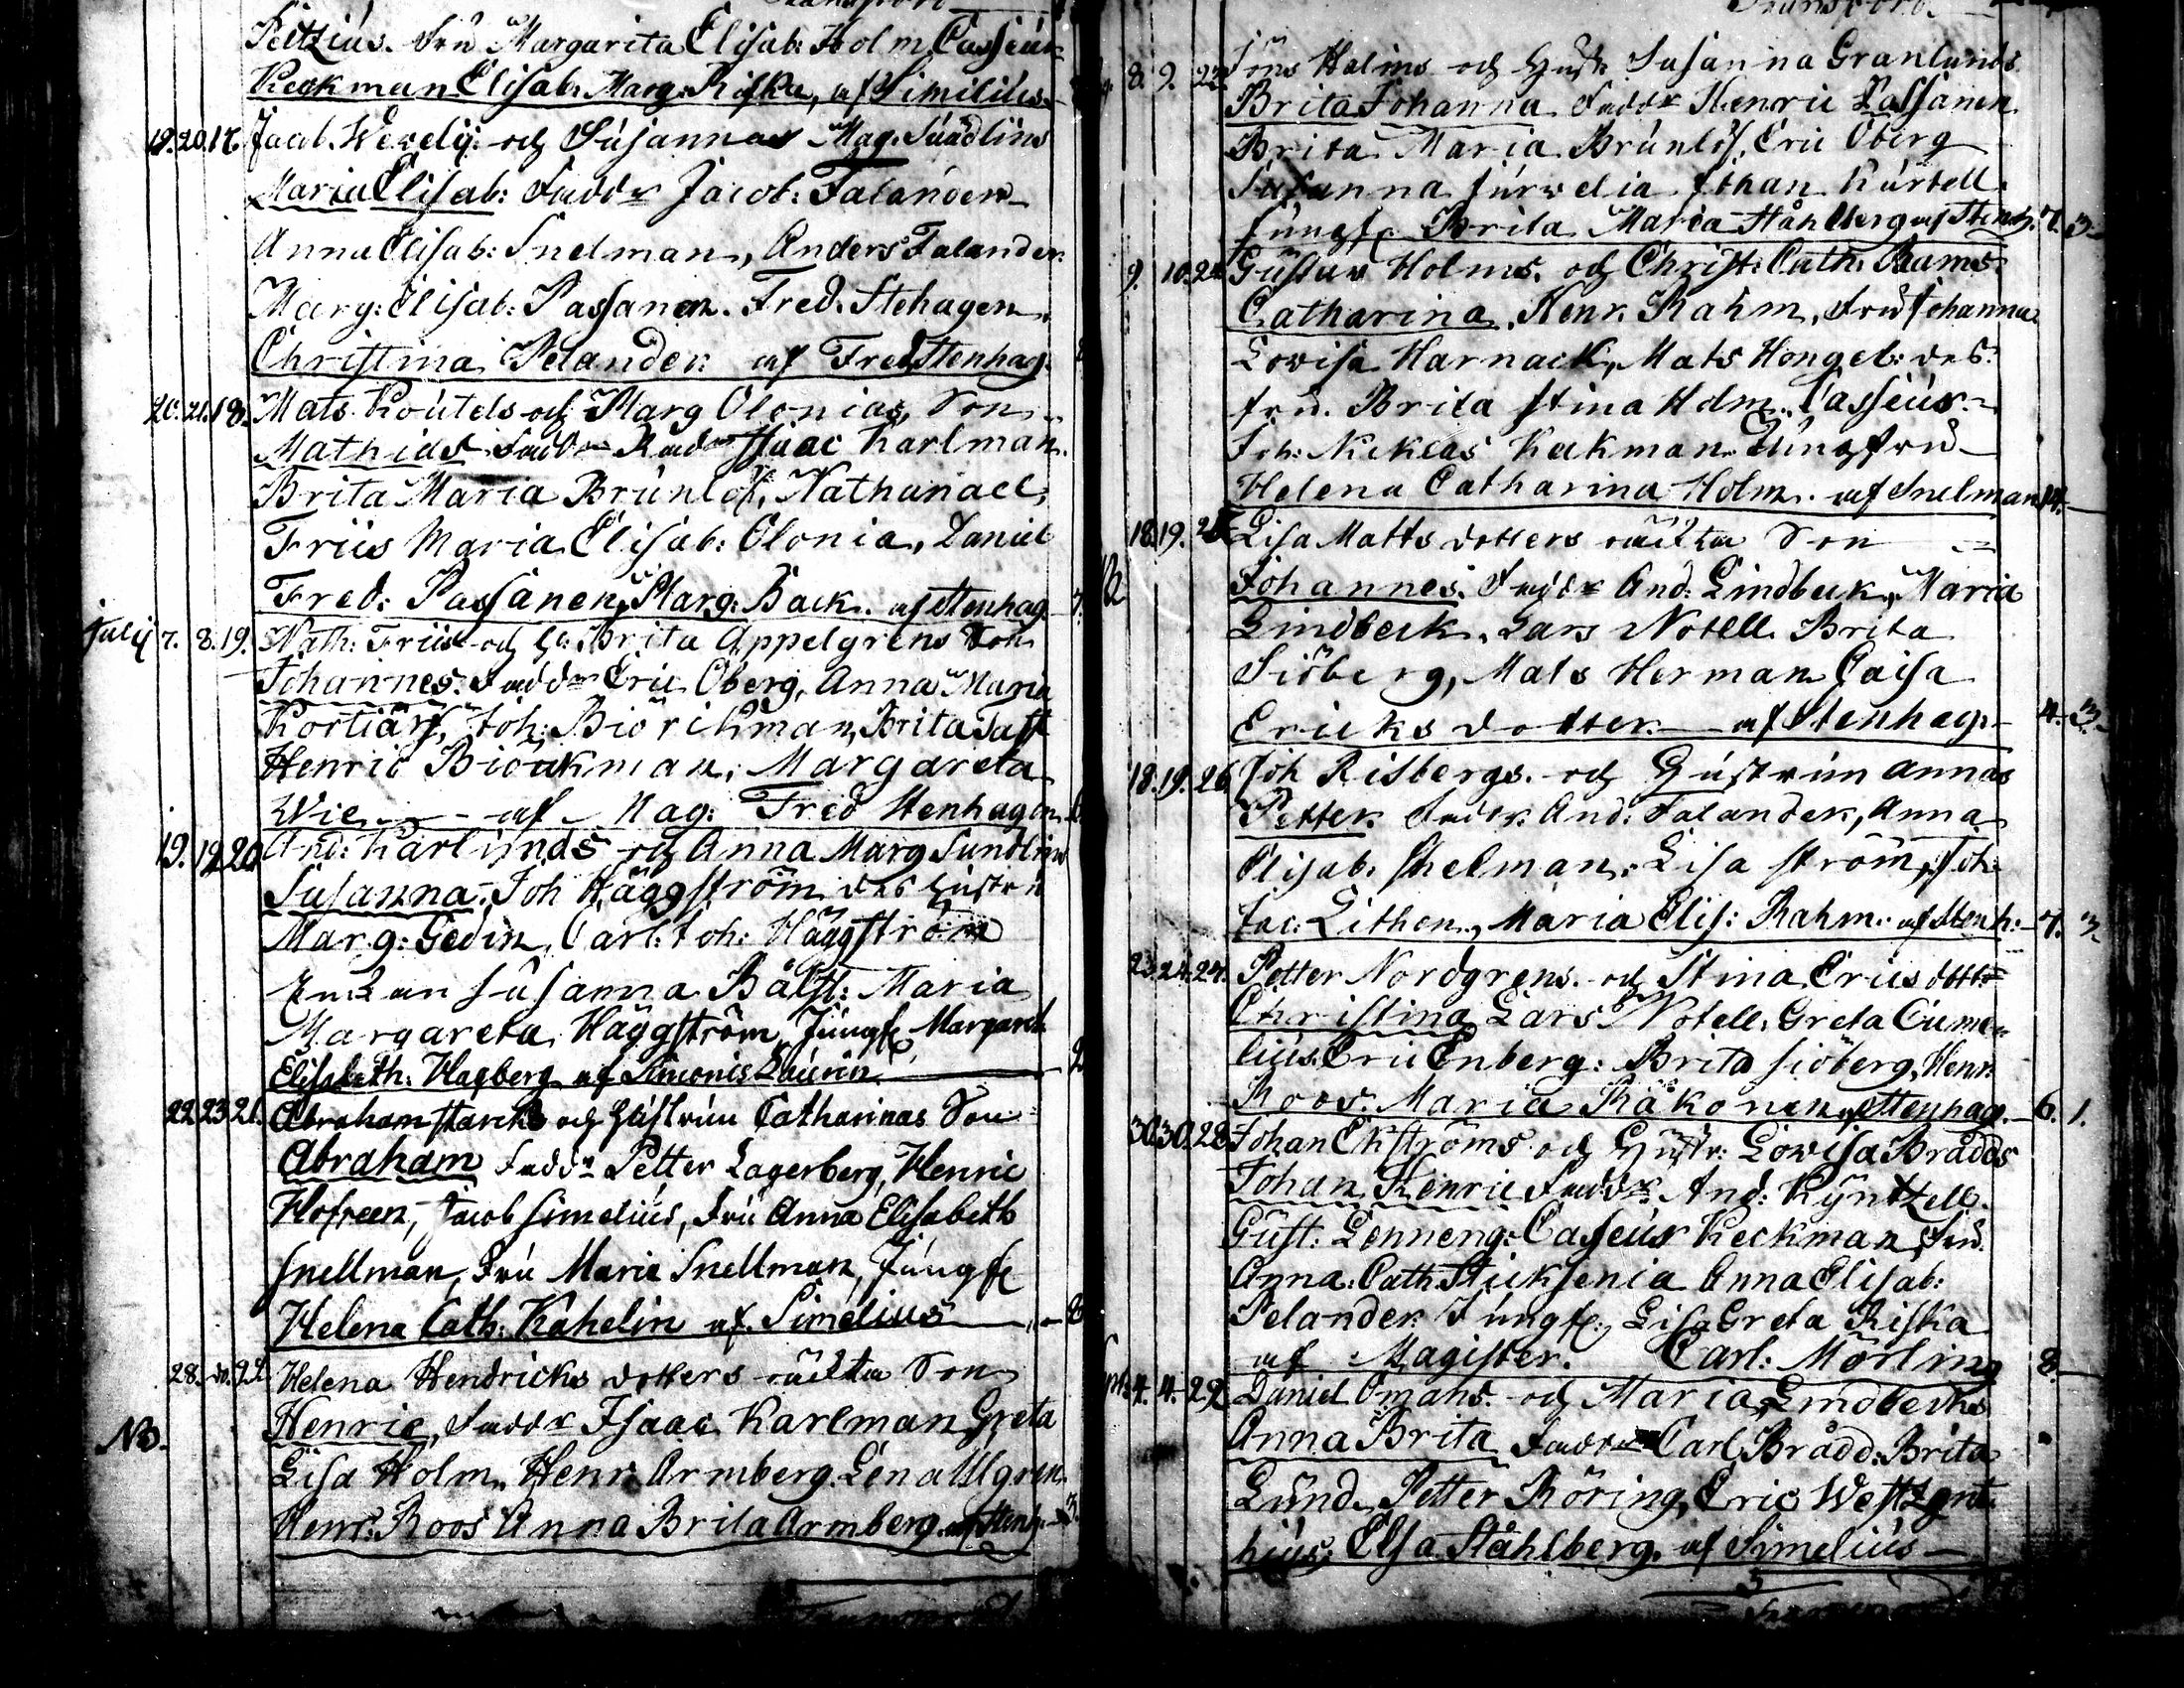 Transport
Peitzius. Fru Margarita Elisab: Holm, Casseur
Keckman Elisab. Marg. Riska, af Similius.
19. 20. 17. Jacob Wevelij: och Susannas Mag. Sundlins
Maria Elisab: Faddr Jacob: Falander
Anna Elisab: Snelman, Anders Falander
Marg: Elisab: Passanen. Fred. Stehagen.
Christina Pelander. af Fred Stenhag.
20. 21. 18. Mats Koutels och Marg Olonias, Son
Mathias Faddr Isaac Karlman.
Brita Maria Brunlöf, Nathanael,
Friis Maria Elisab: Olonia, Daniel
Fred: Passanen, Marg: Back. af Stenhag. 7.
July 7. 8. 19. Nath: Friis och h: Brita Appelgrens Son
Johannes. Faddr Eric Öberg, Anna Maria
Kortiärf, Joh: Biörckman, Brita Sass
Henric Biörckman, Margareta
Wie af Mag: Fred Stenhagen
19. 19. 20. And: Karlunds och Anna Marg Sundlins
Susanna. Joh Häggström des hustru
Marg: Gedin, Carl: Joh: Häggström
Enkan Susanna Bälst: Maria
Margareta, Häggström, Jungf. Margaret
Elisabeth: Hagberg af Simonis Laurin
22. 23. 21. Abraham Starcks och Hustrun Catharinas Son
Abraham Faddr Petter Lagerberg, Henric
Hofreen, Jacob Simelius, Fru Anna Elisabeth
Snellman, Fru Maria Snellman, Jungf.
Helena Cath: Kahelin af Simelius 8
28. do. 22. Helena Hendricks dotters oäckta Son
Henric, Faddr Isaac Karlman Greta
NB. Lisa Holm. Henr. Armberg. Lena Ulgren
Henr: Roos Anna Brita Armberg. af Stenh. 3.
Transport
8. 9. 23. Jöns Holms och Hustr. Susanna Granlunds
Brita Johanna Faddr Henric Passanen
Brita Maria Brunlöf, Eric Öberg
Susanna Jurvelia Johan Kurtell.
Jungf. Brita Maria Ståhlberg af Stenh. 7. 3.
9. 10. 24. Gustav Holms. och Christ: Cath: Rams.
Catharina, Henr. Rahm, Fru Johanna
Lovisa Harnack, Mats Hongel: des
fru. Brita Stina Holm, Casseur
Joh: Nicklas Keckman Jungfru
Helena Catharina Holm. af Snelman 14.
18. 19. 25. Lisa Matts dotters oäckta Son
Johannes. Faddr And: Lindbeck, Maria
Lindbeck, Lars Notell. Brita
Siöberg, Mats Herman Caisa
Ericks dotter af Stenhag. 4. 3.
18. 19. 26. Joh Risbergs. och Hustrun Annas
Petter Faddr. And: Falander, Anna
Elisab. Snelman, Lisa Ström, Joh.
Jac: Lithen, Maria Elis: Rahm. af Stenh: 7. 3.
23. 24. 27. Petter Nordgrens. och Stina Ericsdottr
Christina Lars Notell, Greta Cume
lius. Eric Enberg: Brita Siöberg, Henr.
Roos. Maria Räkonen af Stenhag. 6. 1.
30. 30. 28. Johan Ekströms och Hustr: Lovisa Brådds
Johan Henric Faddr And: Kyntzell.
Gust: Lenneng: Caseur Keckman, Fru.
Anna: Cath Stieksenia Anna Elisab:
Pelander. Jungf: Lisa Greta Riska
af Magister. Carl: Mörling 8.
4. 4. 29. Daniel Omans. och Maria Lindbecks
Anna Brita Faddr Carl Brådd. Brita
Lund. Petter Röring, Eric Westzynt
hius. Elsa Ståhlberg. af Simelius